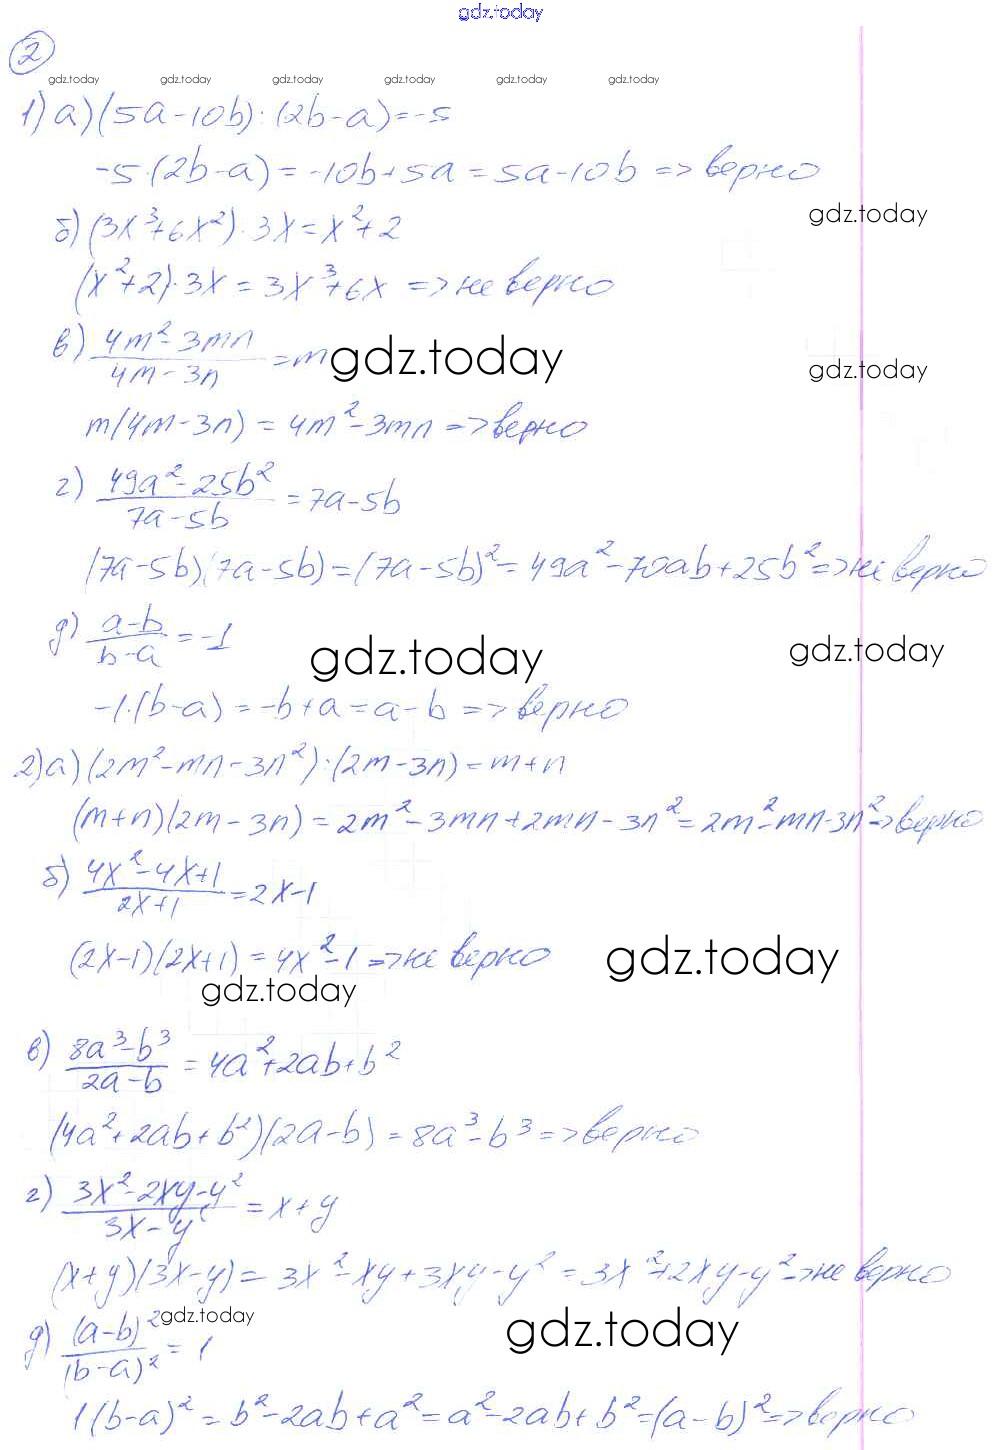 gdz.today
2
gdz.today gdz.today gdz.today gdz.today gdz.today gdz.today
1) а) (5a-10b):(2b-a)=-5
-5·(2b-a)=-10b+5a=5a-10b=>верно
gdz.today
б) (3x³+6x²)·3x=x²+2
(x²+2)·3x=3x³+6x=>не верно
в) (4m²-3mn)/(4m-3n)=m
gdz.today
gdz.today
m(4m-3n)=4m²-3mn=>верно
г) (49a²-25b²)/(7a-5b)=7a-5b
(7a-5b)(7a-5b)=(7a-5b)²=49a²-70ab+25b²=>не верно
д) (a-b)/(b-a)=-1
gdz.today
gdz.today
-1·(b-a)=-b+a=a-b=>верно
2) а) (2m²-mn-3n²):(2m-3n)=m+n
(m+n)(2m-3n)=2m²-3mn+2mn-3n²=2m²-mn-3n²=>верно
б) (4x²-4x+1)/(2x+1)=2x-1
(2x-1)(2x+1)=4x²-1=>не верно
gdz.today
gdz.today
в) (8a³-b³)/(2a-b)=4a²+2ab+b²
(4a²+2ab+b²)(2a-b)=8a³-b³=>верно
г) (3x²-2xy-y²)/(3x-y)=x+y
(x+y)(3x-y)=3x²-xy+3xy-y²=3x²+2xy-y²=>не верно
gdz.today
gdz.today
д) (a-b)²/(b-a)²=1
1(b-a)²=b²-2ab+a²=a²-2ab+b²=(a-b)²=>верно